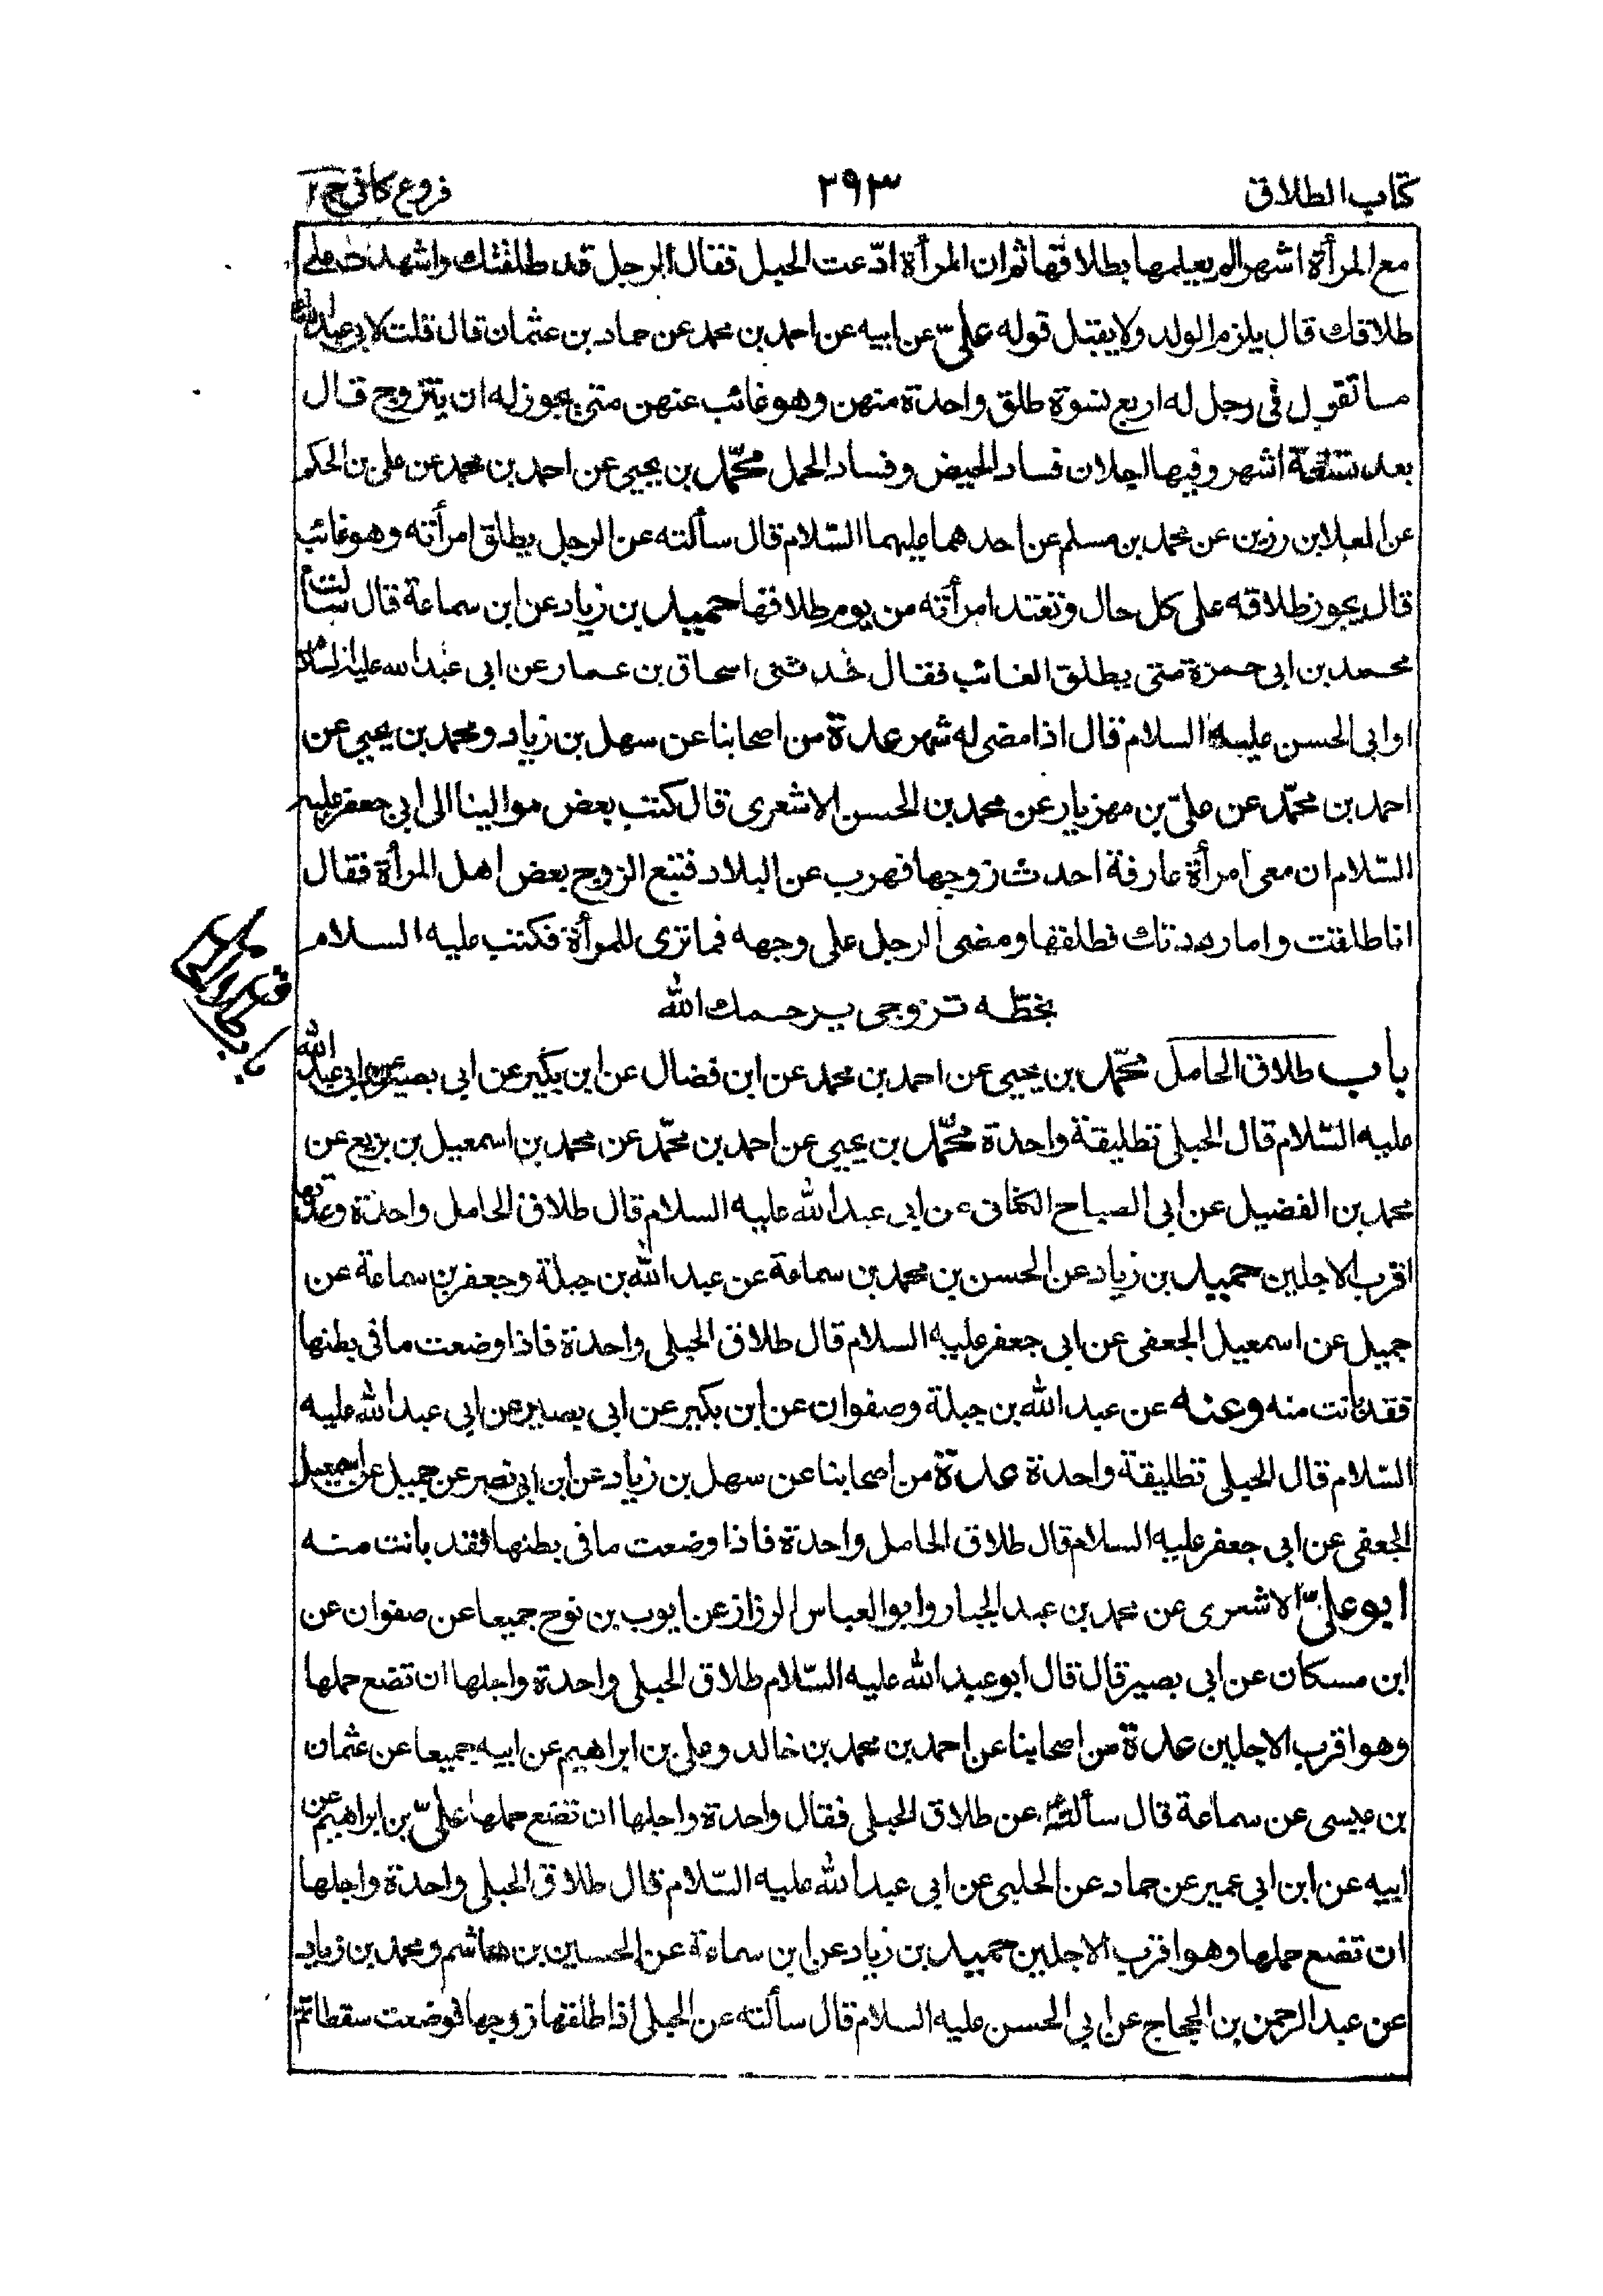 كتاب الطلاق
٢٩٣
فروع كافى ج ٢
مع المرأة اشهرا لم يعلمها بطلاقها ثم ان المرأة ادّعت الحبل فقال الرجل قد طلقتك واشهدت على
طلاقك قال يلزم الولد ولا يقبل قوله علىّ عن ابيه عن احمد بن محمد عن حماد بن عثمان قال قلت لابى عبدالله
ما تقول فى رجل له اربع نسوة طلق واحدة منهن وهو غائب عنهن متى يجوز له ان يتزوج قال
بعد تسعة اشهر وفيها اجلان فساد الحيض وفساد الحمل محمّد بن يحيى عن احمد بن محمد عن على بن الحكم
عن العلا بن رزين عن محمد بن مسلم عن احدهما عليهما السّلام قال سألته عن الرجل يطلق امرأته وهو غائب
قال يجوز طلاقه على كل حال وتعتد امرأته من يوم طلاقها حميد بن زياد عن ابن سماعة قال سألت
محمد بن ابى حمزة متى يطلق الغائب فقال حدثنى اسحاق بن عمار عن ابى عبدالله عليه السلام
او ابى الحسن عليه السلام قال اذا مضى له شهر عدة من اصحابنا عن سهل بن زياد ومحمد بن يحيى عن
احمد بن محمّد عن علىّ بن مهزيار عن محمد بن الحسن الاشعرى قال كتب بعض موالينا الى ابى جعفر عليه
السّلام ان معى امرأة عارفة احدث زوجها فهرب عن البلاد فتبع الزوج بعض اهل المرأة فقال
اما طلقت واما رددتك فطلقها ومضى الرجل على وجهه فما ترى للمرأة فكتب عليه السلام
بخطّه تزوجى يرحمك الله
باب طلاق الحامل محمّد بن يحيى عن احمد بن محمد عن ابن فضال عن ابن بكير عن ابى بصير عن ابى عبد الله
عليه السّلام قال الحبلى تطليقة واحدة محمّد بن يحيى عن احمد بن محمّد عن محمد بن اسمعيل بن بزيع عن
محمد بن الفضيل عن ابى الصباح الكنانى عن ابى عبد الله عليه السلام قال طلاق الحامل واحدة وعدتها
اقرب الاجلين حميد بن زياد عن الحسن بن محمد بن سماعة عن عبد الله بن جبلة وجعفر بن سماعة عن
جميل عن اسمعيل الجعفى عن ابى جعفر عليه السلام قال طلاق الحبلى واحدة فاذا وضعت ما فى بطنها
فقد بانت منه وعنه عن عبد الله بن جبلة وصفوان عن ابن بكير عن ابى بصير عن ابى عبد الله عليه
السّلام قال الحبلى تطليقة واحدة عدة من اصحابنا عن سهل بن زياد عن ابن ابى نصر عن جميل عن اسمعيل
الجعفى عن ابى جعفر عليه السلام قال طلاق الحامل واحدة فاذا وضعت ما فى بطنها فقد بانت منه
ابو علىّ الاشعرى عن محمد بن عبد الجبار وابو العباس الرزاز عن ايوب بن نوح جميعا عن صفوان عن
ابن مسكان عن ابى بصير قال قال ابو عبد الله عليه السّلام طلاق الحبلى واحدة واجلها ان تضع حملها
وهو اقرب الاجلين عدة من اصحابنا عن احمد بن محمد بن خالد وعلى بن ابراهيم عن ابيه جميعا عن عثمان
بن عيسى عن سماعة قال سألته عن طلاق الحبلى فقال واحدة واجلها ان تضع حملها علىّ بن ابراهيم عن
ابيه عن ابن ابى عمير عن حماد عن الحلبى عن ابى عبد الله عليه السّلام قال طلاق الحبلى واحدة واجلها
ان تضع حملها وهو اقرب الاجلين حميد بن زياد عن ابن سماعة عن الحسين بن هاشم ومحمد بن زياد
عن عبد الرحمن بن الحجاج عن ابى الحسن عليه السلام قال سألته عن الحبلى اذا طلقها زوجها فوضعت سقطا تمّ
باب طلاق الحامل